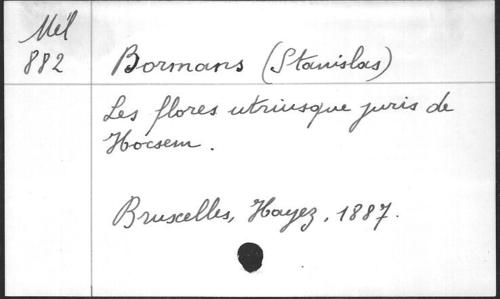 Mél
882
Bormans (Stanislas)
Les flores utriusque juris de
Hocsem.
Bruxelles, Hayez, 1887.